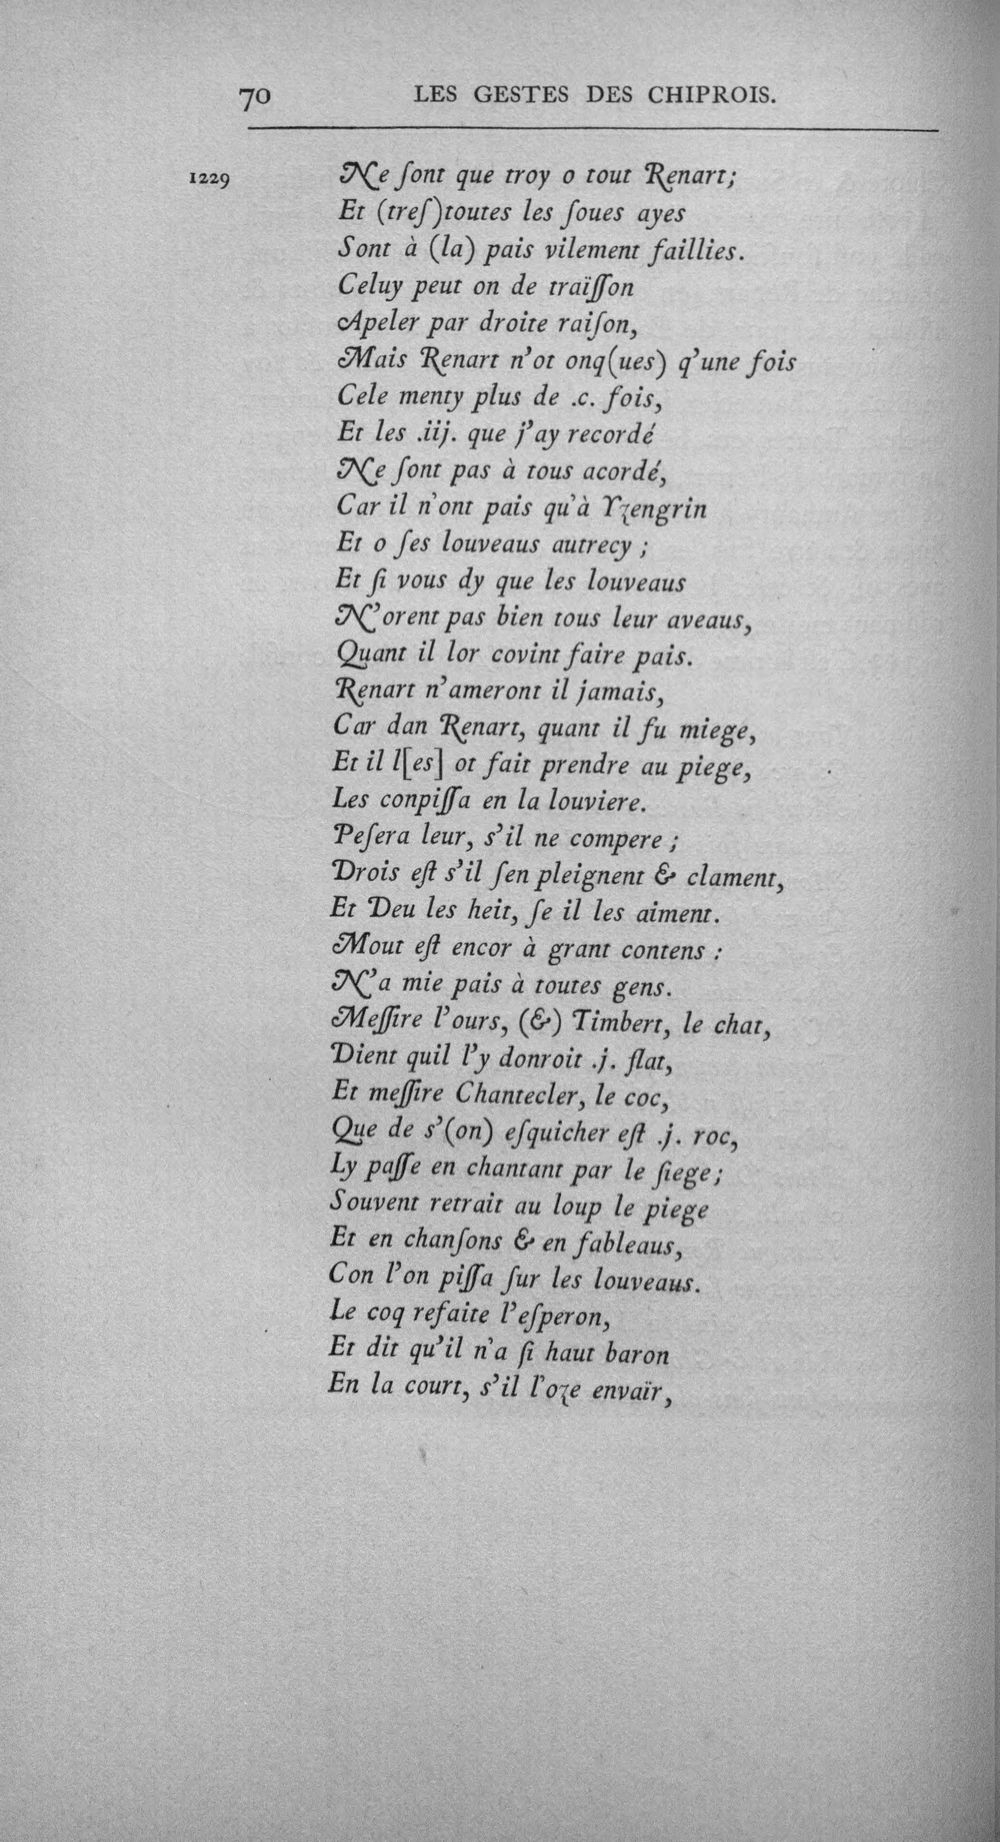 70 LES GESTES DES CHIPROIS.
1229 Ne ſont que troy o tout Renart;
Et (treſ)toutes les ſoues ayes
Sont à (la) pais vilement faillies.
Celuy peut on de traïſſon
Apeler par droite raiſon,
Mais Renart n'ot onq(ues) q'une fois
Cele menty plus de .c. fois,
Et les .iij. que j'ay recordé
Ne ſont pas à tous acordé,
Car il n'ont pais qu'à Yzengrin
Et o ſes louveaus autrecy ;
Et ſi vous dy que les louveaus
N'orent pas bien tous leur aveaus,
Quant il lor covint faire pais.
Renart n'ameront il jamais,
Car dan Renart, quant il fu miege,
Et il l[es] ot fait prendre au piege,
Les conpiſſa en la louviere.
Peſera leur, s'il ne compere ;
Drois eſt s'il ſen pleignent & clament,
Et Deu les heit, ſe il les aiment.
Mout eſt encor à grant contens :
N'a mie pais à toutes gens.
Meſſire l'ours, (&) Timbert, le chat,
Dient quil l'y donroit .j. flat,
Et meſſire Chantecler, le coc,
Que de s'(on) eſquicher eſt .j. roc,
Ly paſſe en chantant par le ſiege;
Souvent retrait au loup le piege
Et en chanſons & en fableaus,
Con l'on piſſa ſur les louveaus.
Le coq refaite l'eſperon,
Et dit qu'il n'a ſi haut baron
En la court, s'il l'oze envaïr,